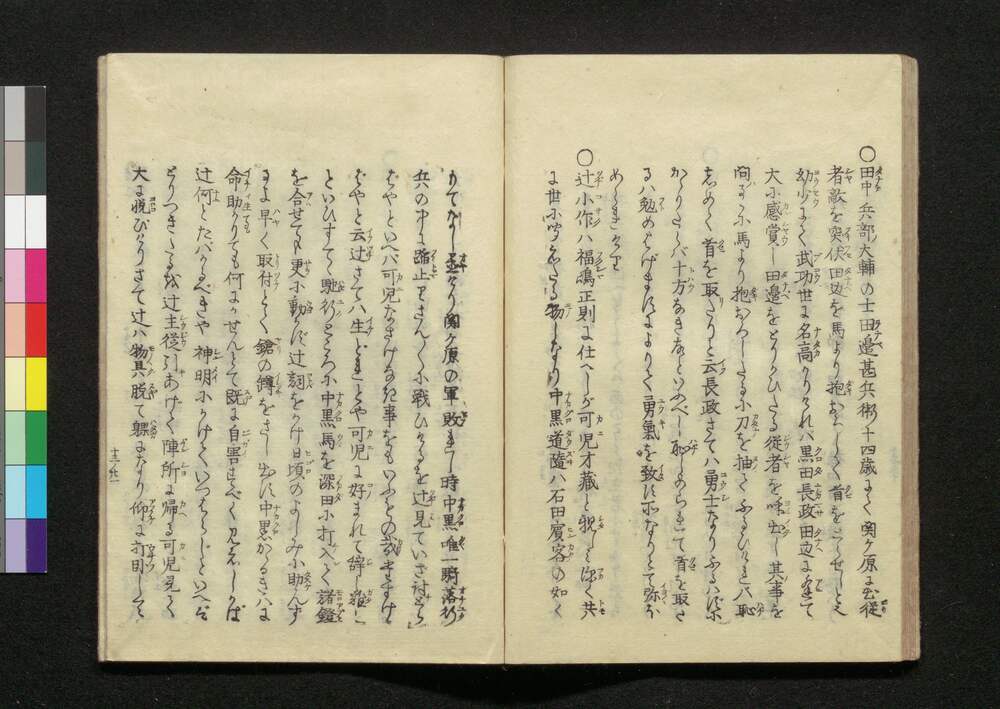 〇田中兵部大輔の士田邉甚兵衛十四歳にて関ヶ原に出従
者敵を突伏田辺を馬より抱おろして首をとらせしとぞ
幼少にて武功世に名高かりけれハ黒田長政田辺に逢て
大に感賞し田邉をとりかひたる従者を呼出し其事を
問るゝに馬より抱おろしたる小刀を抜てふるひけれハ恥
しめて首を取たりと云長政さてハ勇士なりふるハずに
かゝりたらバ十方あきなといふべし恥しめられて首を取さ
るハ勉めはげますによりて勇氣を致す所なりとて弥ほ
められけり
〇辻小作ハ福嶋正則に仕へしが可児才蔵と親しく深く共
に世に聞えたる物しなり中黒道随ハ石田賓客の如く
もてなし置けり関ヶ原の軍敗れし時中黒唯一騎落行
兵の中に踏止りさんざんに戦ひけるを辻見ていざ討とら
ばやといへバ可児なさけなき事をもいふもの哉たすけ
ばやと云辻さてハ生どれとや可児に好まれて辞し難し
といひすてゝ馳行ところに中黒馬を深田に打入て諸鐙
を合せても更に動かず辻詞をかけ日頃のよしみ小助んず
るよ早く取付とて鎗の鐏をさし出す中黒かゝるきハに
命助かりても何かせんとて既に自害すべく見えしかば
辻何とたバかるべきや神明にかけていつはらじといへば
とりつきたるを辻主従引あげて陣所に帰る可児見て
大に悦びけりさて辻ハ物具脱て躶になり仰に打臥して
十三ノ廿一